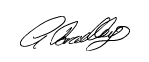 A Bradley